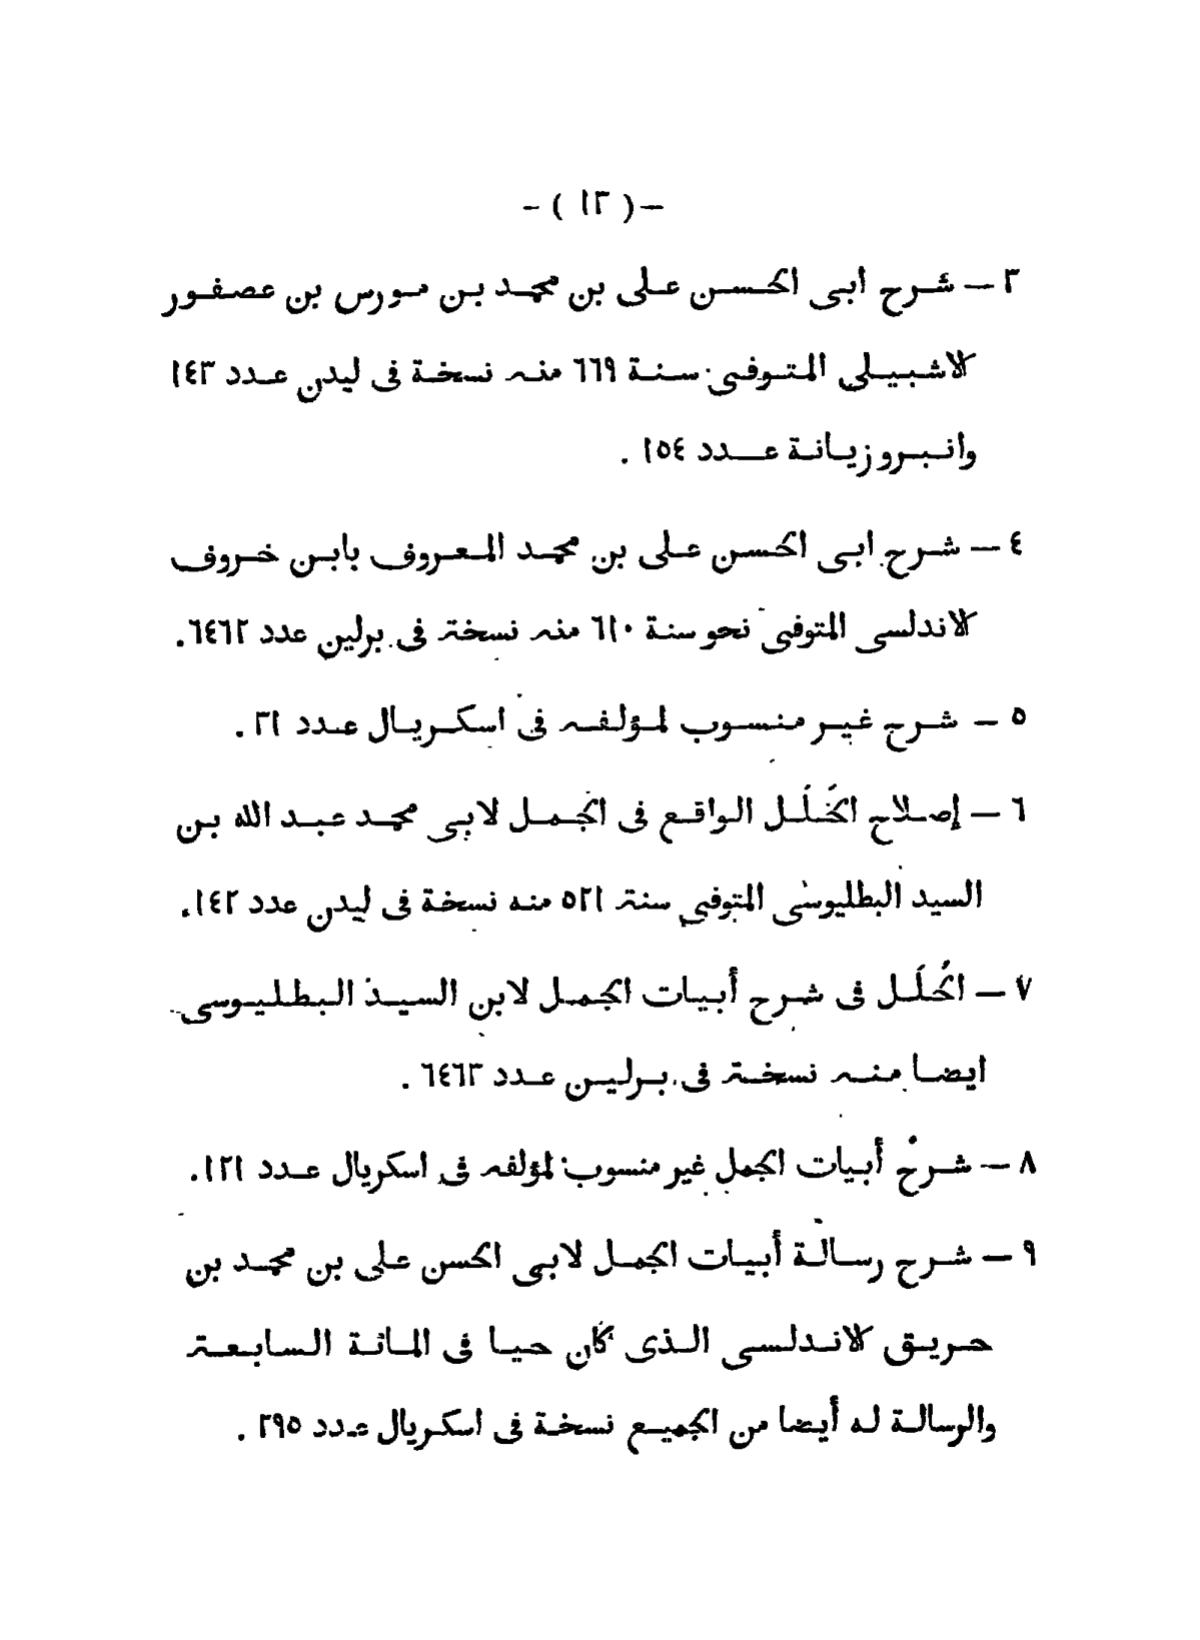 - ( ١٣ ) -
٣ — شرح ابى الحسن على بن محمد بن مورس بن عصفور
الاشبيلى المتوفى سنة ٦٦٩ منه نسخة فى ليدن عدد ١٤٣
وانبروزيانة عدد ١٥٤ .
٤ — شرح ابى الحسن على بن محمد المعروف بابن خروف
الاندلسى المتوفى نحو سنة ٦١٠ منه نسخة فى برلين عدد ٦٤٦٢.
٥ — شرح غير منسوب لمؤلفه فى اسكريال عدد ٣١ .
٦ — إصلاح الخَلَل الواقع فى الجمل لابى محمد عبد الله بن
السيد البطليوسى المتوفى سنة ٥٢١ منه نسخة فى ليدن عدد ١٤٢.
٧ — الحُلَل فى شرح أبيات الجمل لابن السيد البطليوسى
ايضا منه نسخة فى برلين عدد ٦٤٦٣ .
٨ — شرح أبيات الجمل غير منسوب لمؤلفه فى اسكريال عدد ١٢١.
٩ — شرح رسالة أبيات الجمل لابى الحسن على بن محمد بن
حريق الاندلسى الذى كان حيا فى المائة السابعة
والرسالة له أيضا من الجميع نسخة فى اسكريال عدد ٢٩٥ .